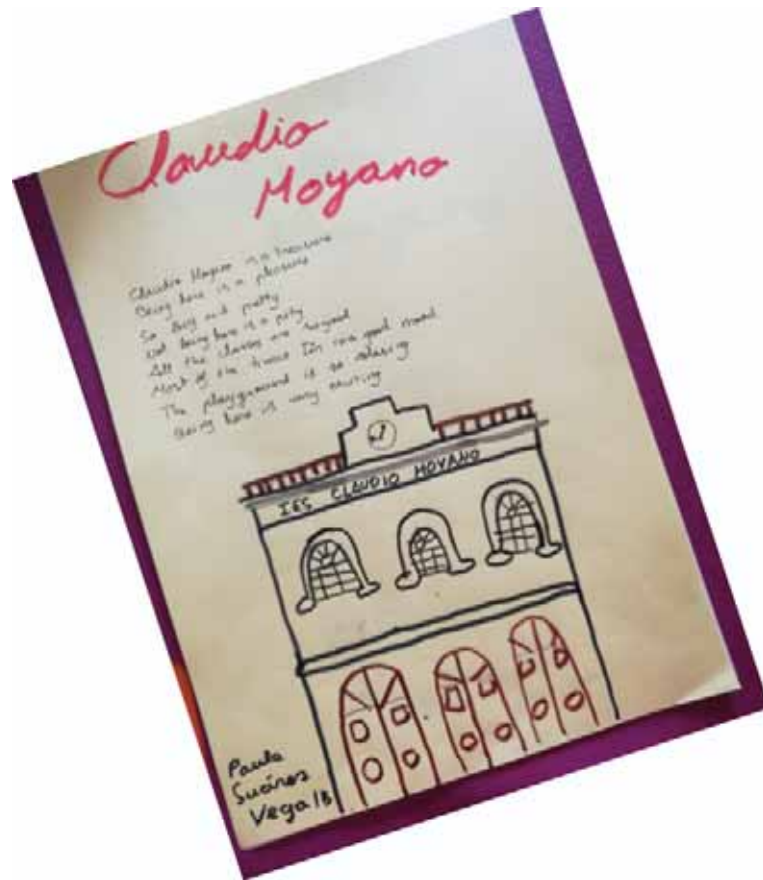 Claudio
Moyano
Claudio Moyano is a treasure
Being here is a pleasure
So big and pretty
Not being here is a pity
All the classes are
Most of the times I'm in a good mood
The playground is so relaxing
Being here is very exciting
IES CLAUDIO MOYANO
Paula
Suáres
Vega 1B